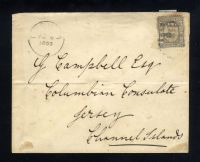 G Campbell Esq
Columbian Consulate
Jersey
Channel Islands